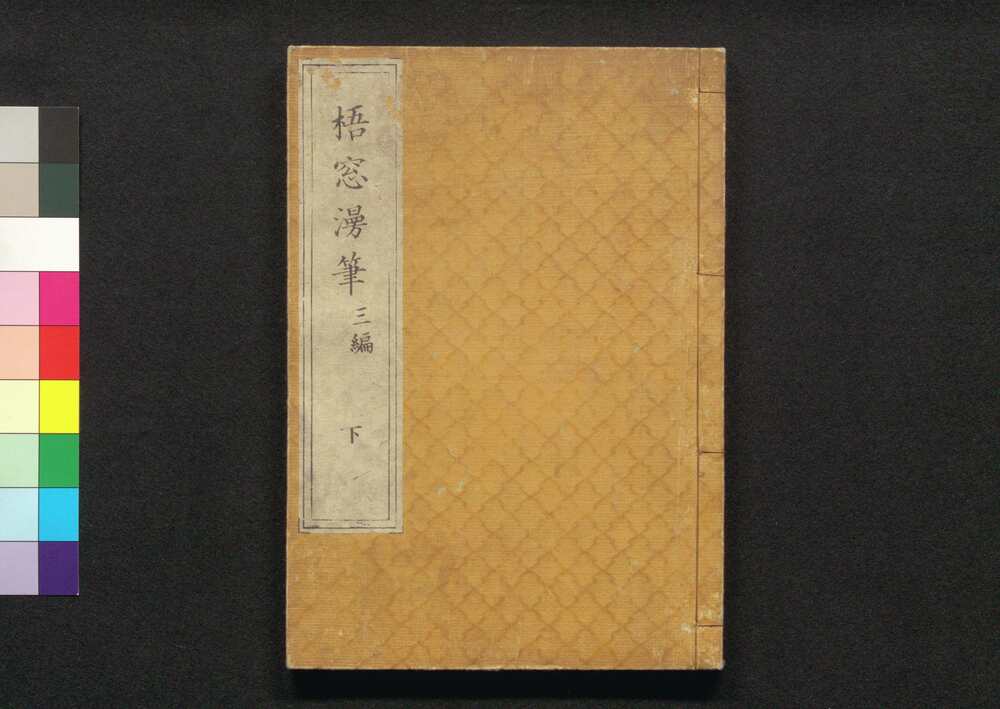 梧窓漫筆 三編 下